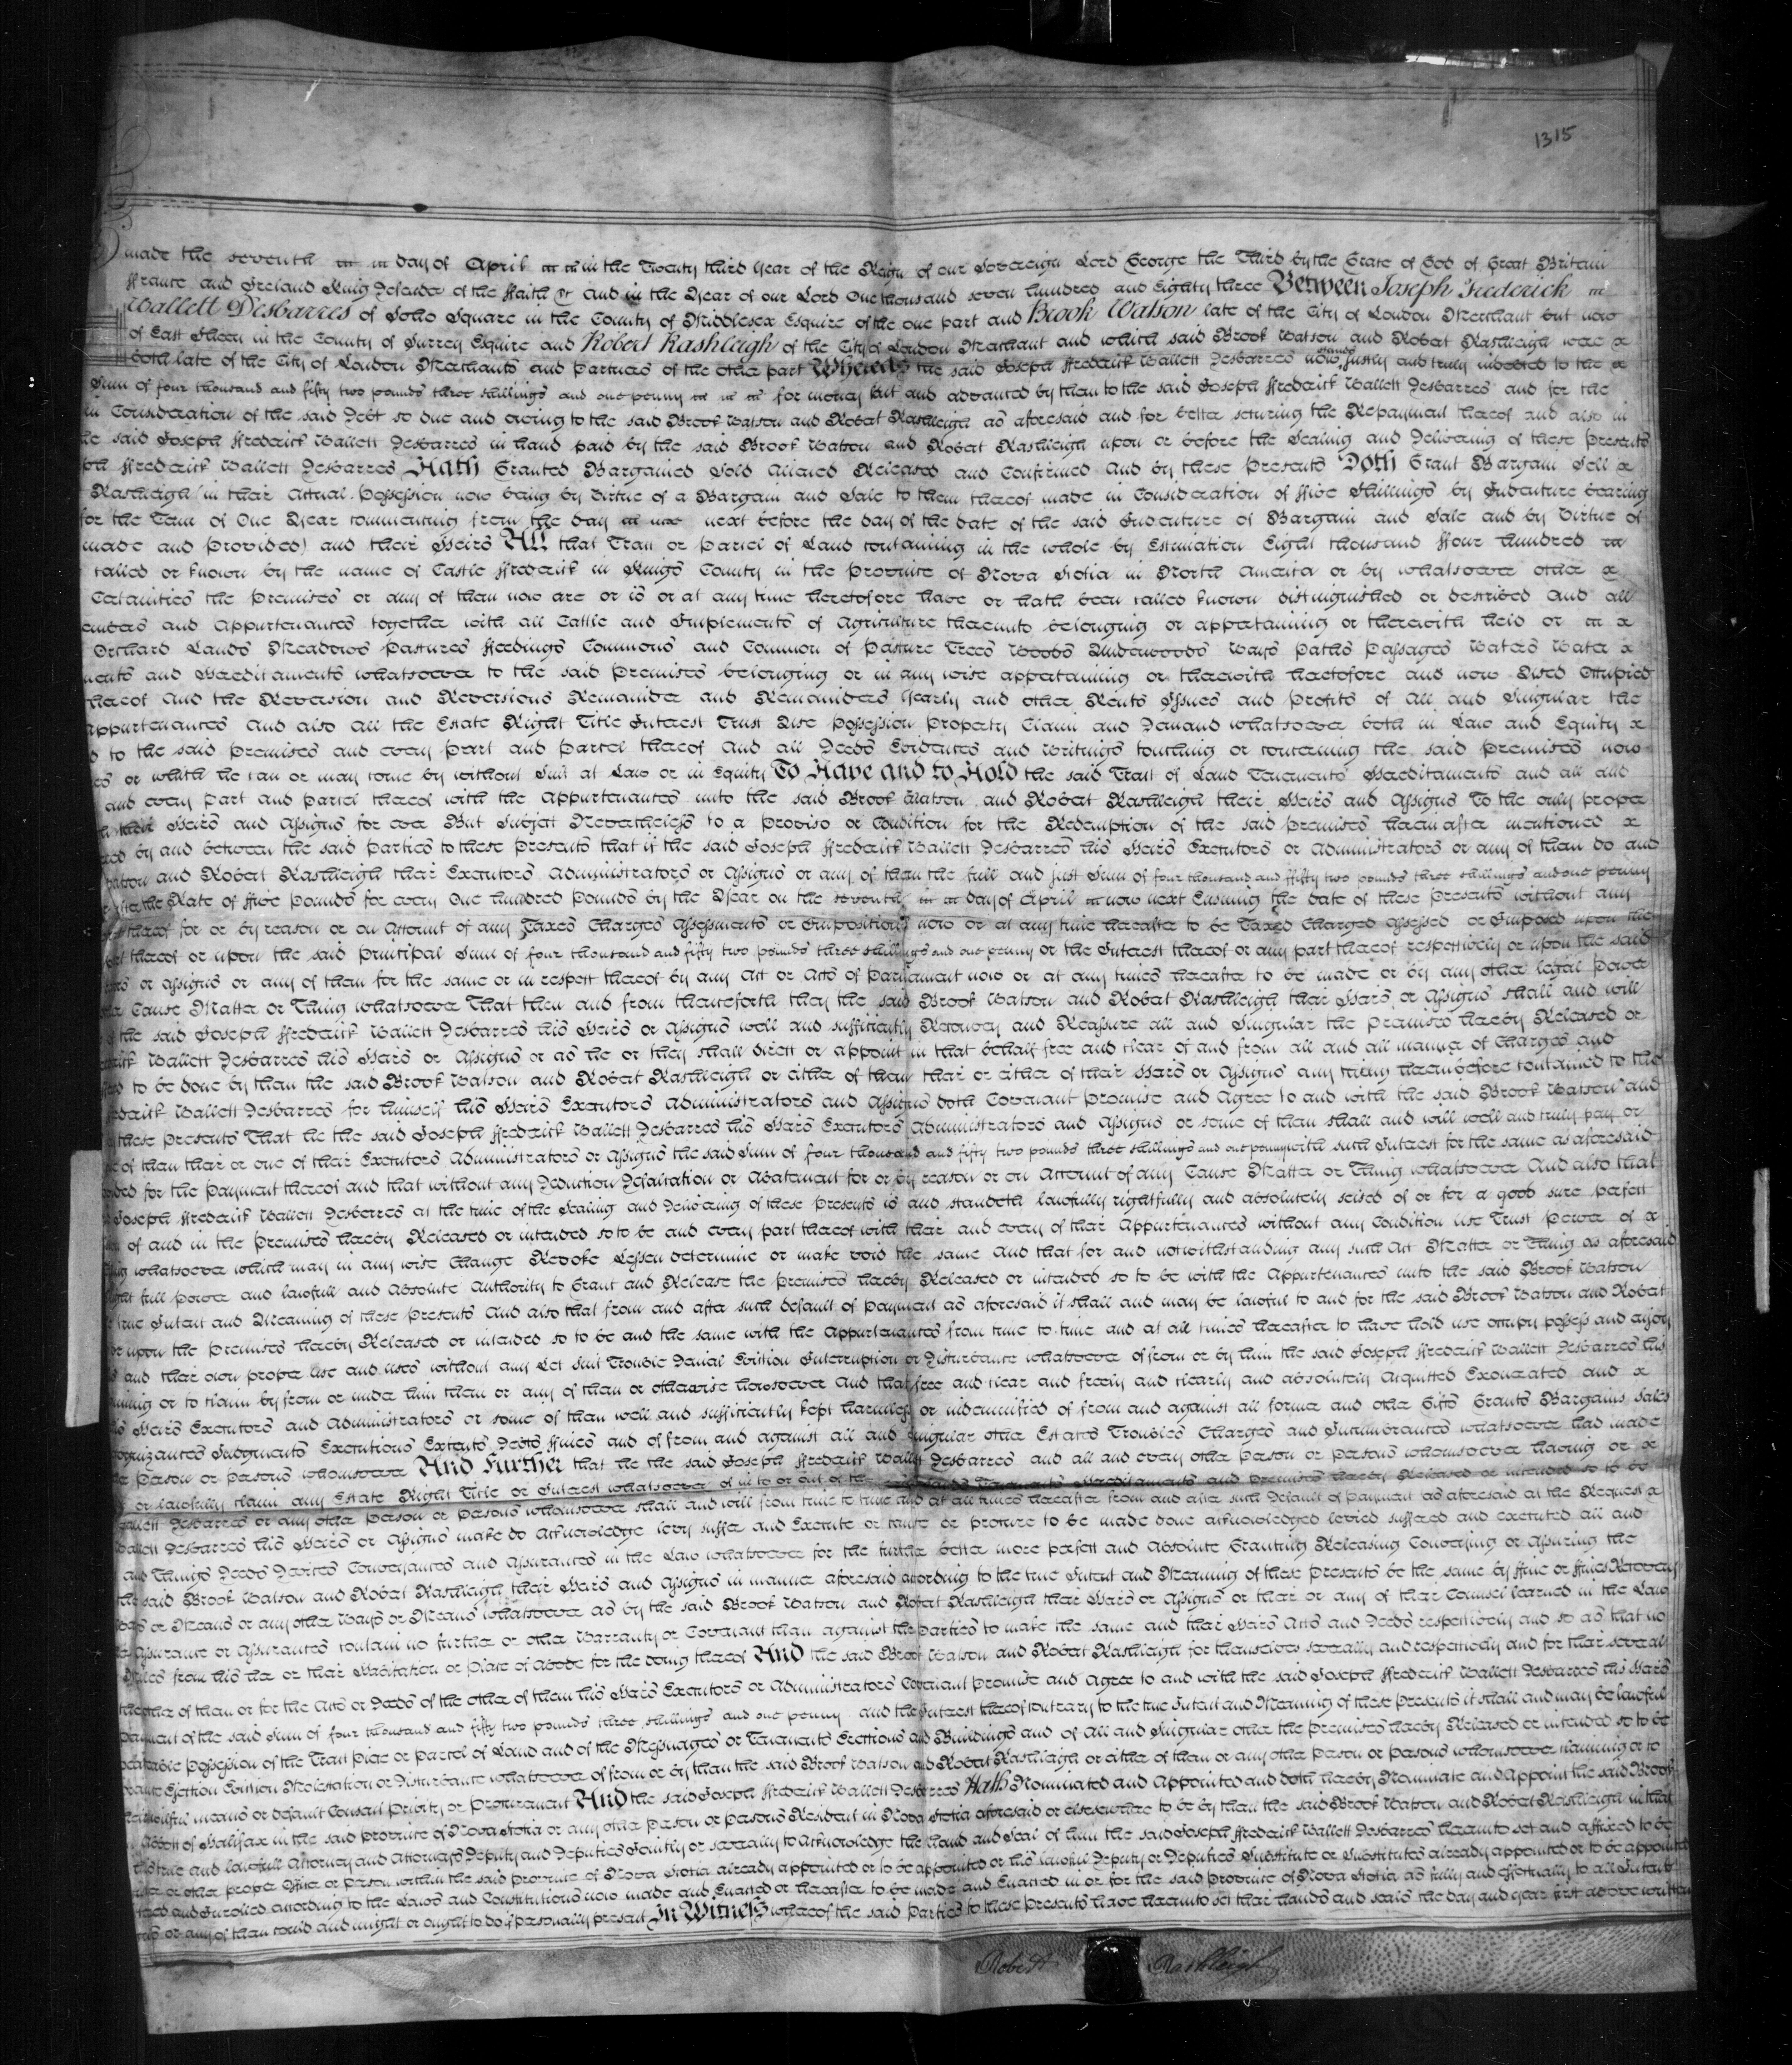 1315
made the seventh day of April in the Twenty third Year of the Reign of our Sovereign Lord George the Third by the Grace of God of Great Britain
ffrance and Ireland King Defender of the ffaith &c And in the Year of our Lord One thousand seven hundred and Eighty three Between Joseph Frederick
Wallett Desbarres of Soho Square in the County of Middlesex Esquire of the one part and Brook Watson late of the City of London Merchant but now
of East Sheen in the County of Surrey Esquire and Robert Rashleigh of the City of London Merchant and which said Brook Watson and Robert Rashleigh were
both late of the City of London Merchants and Partners of the other part Whereas the said Joseph ffrederick Wallett Desbarres now stands justly and truly indebted to the
Sum of four thousand and fifty two pounds three shillings and one penny for money lent and advanced by them to the said Joseph ffrederick Wallett Desbarres and for the
in Consideration of the said Debt so due and owing to the said Brook Watson and Robert Rashleigh as aforesaid and for better securing the Repayment thereof and also in
the said Joseph ffrederick Wallett Desbarres in hand paid by the said Brook Watson and Robert Rashleigh upon or before the Sealing and Delivering of these Presents
ffrederick Wallett Desbarres Hath Granted Bargained Sold Aliened Released and Confirmed And by these Presents Doth Grant Bargain Sell
Rashleigh (in their Actual Possession now being by Virtue of a Bargain and Sale to them thereof made in Consideration of ffive Shillings by Indenture bearing
for the Term of One Year commencing from the day next before the day of the date of the said Indenture of Bargain and Sale and by Virtue of
made and Provided) and their Heirs All that Tract or Parcel of Land containing in the whole by Estimation Eight thousand ffour hundred
called or known by the name of Castle ffrederick in Kings County in the Province of Nova Scotia in North America or by whatsoever other
Certainties the Premises or any of them now are or is or at any time heretofore have or hath been called known distinguished or described And all
members and Appurtenances together with all Cattle and Implements of Agriculture thereunto belonging or appertaining or therewith held or
Orchard Lands Meadows Pastures ffeedings Commons and Common of Pasture Trees Woods Underwoods Ways Paths Passages Waters Water
and Hereditaments whatsoever to the said Premises belonging or in any wise appertaining or therewith heretofore and now Used Occupied
thereof And the Reversion and Reversions Remainder and Remainders Yearly and other Rents Issues and Profits of All and Singular the
Appurtenances And also all the Estate Right Title Interest Trust Use Possession Property Claim and Demand whatsoever both in Law and Equity
to the said Premises and every Part and Parcel thereof And all Deeds Evidences and Writings touching or concerning the said Premises now
or which he can or may come by without Suit at Law or in Equity To Have and to Hold the said Tract of Land Tenements Hereditaments and all and
and every Part and Parcel thereof with the Appurtenances unto the said Brook Watson and Robert Rashleigh their Heirs and Assigns To the only proper
their Heirs and Assigns for ever But Subject Nevertheless to a Proviso or Condition for the Redemption of the said Premises herein after mentioned
by and between the said Parties to these Presents that if the said Joseph ffrederick Wallett Desbarres his Heirs Executors or Administrators or any of them do and
Watson and Robert Rashleigh their Executors Administrators or Assigns or any of them the full and just Sum of four thousand and ffifty two pounds three shillings and one penny
the Rate of ffive Pounds for every One hundred Pounds by the Year on the seventh day of April now next Ensuing the date of these Presents without any
thereof for or by reason or on Account of any Taxes Charges Assessments or Impositions now or at any time hereafter to be Taxed Charged Assessed or Imposed upon the
thereof or upon the said Principal Sum of four thousand and fifty two pounds three shillings and one penny or the Interest thereof or any part thereof respectively or upon the said
or Assigns or any of them for the same or in respect thereof by any Act or Acts of Parliament now or at any times hereafter to be made or by any other legal Power
Cause Matter or Thing whatsoever That then and from thenceforth they the said Brook Watson and Robert Rashleigh their Heirs or Assigns shall and will
the said Joseph ffrederick Wallett Desbarres his Heirs or Assigns well and sufficiently Reconvey and Reassure all and Singular the Premises hereby Released or
Wallett Desbarres his Heirs or Assigns or as he or they shall direct or appoint in that behalf free and clear of and from all and all manner of Charges and
to be done by them the said Brook Watson and Robert Rashleigh or either of them their or either of their Heirs or Assigns any thing hereinbefore contained to the
Wallett Desbarres for himself his Heirs Executors Administrators and Assigns doth Covenant Promise and Agree to and with the said Brook Watson and
these Presents That he the said Joseph ffrederick Wallett Desbarres his Heirs Executors Administrators and Assigns or some of them shall and will well and truly pay or
of them their or one of their Executors Administrators or Assigns the said Sum of four thousand and fifty two pounds three shillings and one penny with such Interest for the same as aforesaid
for the Payment thereof and that without any Deduction Defalcation or Abatement for or by reason or on Account of any Cause Matter or Thing whatsoever And also that
Joseph ffrederick Wallett Desbarres at the time of the Sealing and Delivering of these Presents is and standeth lawfully rightfully and absolutely seised of or for a good sure perfect
of and in the Premises hereby Released or intended so to be and every part thereof with their and every of their Appurtenances without any Condition Use Trust Power of
whatsoever which may in any wise Change Revoke Lessen determine or make void the same And that for and notwithstanding any such Act Matter or Thing as aforesaid
full power and lawfull and Absolute Authority to Grant and Release the Premises hereby Released or intended so to be with the Appurtenances unto the said Brook Watson
true Intent and Meaning of these Presents And also that from and after such default of Payment as aforesaid it shall and may be lawful to and for the said Brook Watson and Robert
upon the Premises hereby Released or intended so to be and the same with the Appurtenances from time to time and at all times hereafter to have hold use occupy possess and enjoy
and their own proper use and uses without any Let Suit Trouble Denial Eviction Interruption or Disturbance whatsoever of from or by him the said Joseph ffrederick Wallett Desbarres his
or to claim by from or under him them or any of them or otherwise howsoever And that free and clear and freely and clearly and absolutely Acquitted Exonerated and
Heirs Executors and Administrators or some of them well and sufficiently kept harmless or indemnified of from and against all former and other Gifts Grants Bargains Sales
Recognizances Judgments Executions Extents Debts ffines and of from and against all and singular other Estates Troubles Charges and Incumbrances whatsoever had made
Person or Persons whomsoever And Further that he the said Joseph ffrederick Wallett Desbarres and all and every other Person or Persons whomsoever having or
or lawfully claim any Estate Right Title or Interest whatsoever of in to or out of the Lands Tenements Hereditaments and Premises hereby Released or intended so to be
Wallett Desbarres or any other Person or Persons whomsoever shall and will from time to time and at all times hereafter from and after such Default of Payment as aforesaid at the Request
Wallett Desbarres his Heirs or Assigns make do Acknowledge levy suffer and Execute or cause or procure to be made done acknowledged levied suffered and executed all and
and Things Deeds Devices Conveyances and Assurances in the Law whatsoever for the further better more perfect and Absolute Granting Releasing Conveying or Assuring the
the said Brook Watson and Robert Rashleigh their Heirs and Assigns in manner aforesaid according to the true Intent and Meaning of these Presents be the same by ffine or ffines Recovery
or Means or any other Ways or Means whatsoever as by the said Brook Watson and Robert Rashleigh their Heirs or Assigns or their or any of their Counsel learned in the Law
Assurance or Assurances contain no further or other Warranty or Covenant than against the Parties to make the same and their Heirs Acts and Deeds respectively and so as that no
Miles from his her or their Habitation or Place of Abode for the doing thereof And the said Brook Watson and Robert Rashleigh for themselves severally and respectively and for their several
the other of them or for the Acts or Deeds of the other of them his Heirs Executors or Administrators Covenant Promise and Agree to and with the said Joseph ffrederick Wallett Desbarres his Heirs
Payment of the said Sum of four thousand and fifty two pounds three shillings and one penny and the Interest thereof contrary to the true Intent and Meaning of these Presents it shall and may be lawful
peaceable Possession of the Tract Piece or Parcel of Land and of the Messuages or Tenements Erections and Buildings and of All and Singular other the Premises hereby Released or intended so to be
Ejection Eviction Molestation or Disturbance whatsoever of from or by them the said Brook Watson and Robert Rashleigh or either of them or any other Person or Persons whomsoever claiming or to
means or default Consent Privity or Procurement And the said Joseph ffrederick Wallett Desbarres Hath Nominated and Appointed and doth hereby Nominate and Appoint the said Brook
of Halifax in the said Province of Nova Scotia or any other Person or Persons Resident in Nova Scotia aforesaid or elsewhere to be by them the said Brook Watson and Robert Rashleigh in that
his true and lawfull Attorney and Attorneys Deputy and Deputies Jointly or severally to Acknowledge the Hand and Seal of him the said Joseph ffrederick Wallett Desbarres hereunto set and affixed to be
or other proper Officer or Person within the said Province of Nova Scotia already appointed or to be appointed or his lawful Deputy or Deputies Substitute or Substitutes already appointed or to be appointed
and Inrolled according to the Laws and Constitutions now made and Enacted or hereafter to be made and Enacted in or for the said Province of Nova Scotia as fully and effectually to all Intents
or any of them could and might or ought to do if personally present In Witness whereof the said Parties to these Presents have hereunto set their hands and seals the day and year first above written
Robert Rashleigh